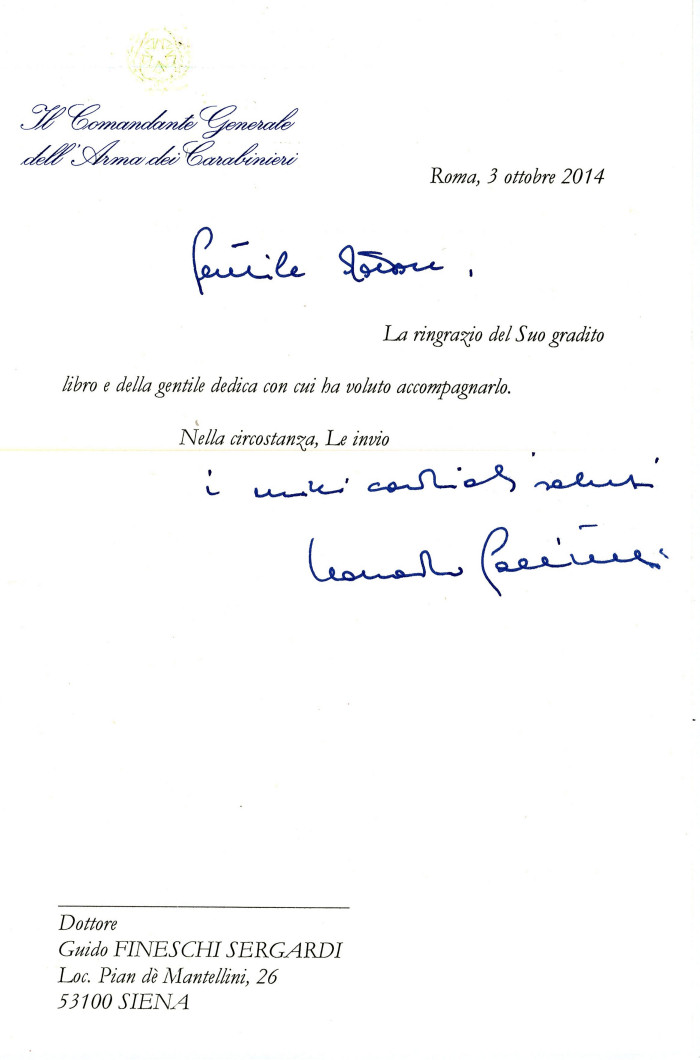 Il Comandante Generale
dell'Arma dei Carabinieri
Roma, 3 ottobre 2014
Gentile Dottore,
La ringrazio del Suo gradito
libro e della gentile dedica con cui ha voluto accompagnarlo.
Nella circostanza, Le invio
i miei cordiali saluti
Leonardo Gallitelli
Dottore
Guido FINESCHI SERGARDI
Loc. Pian dè Mantellini, 26
53100 SIENA